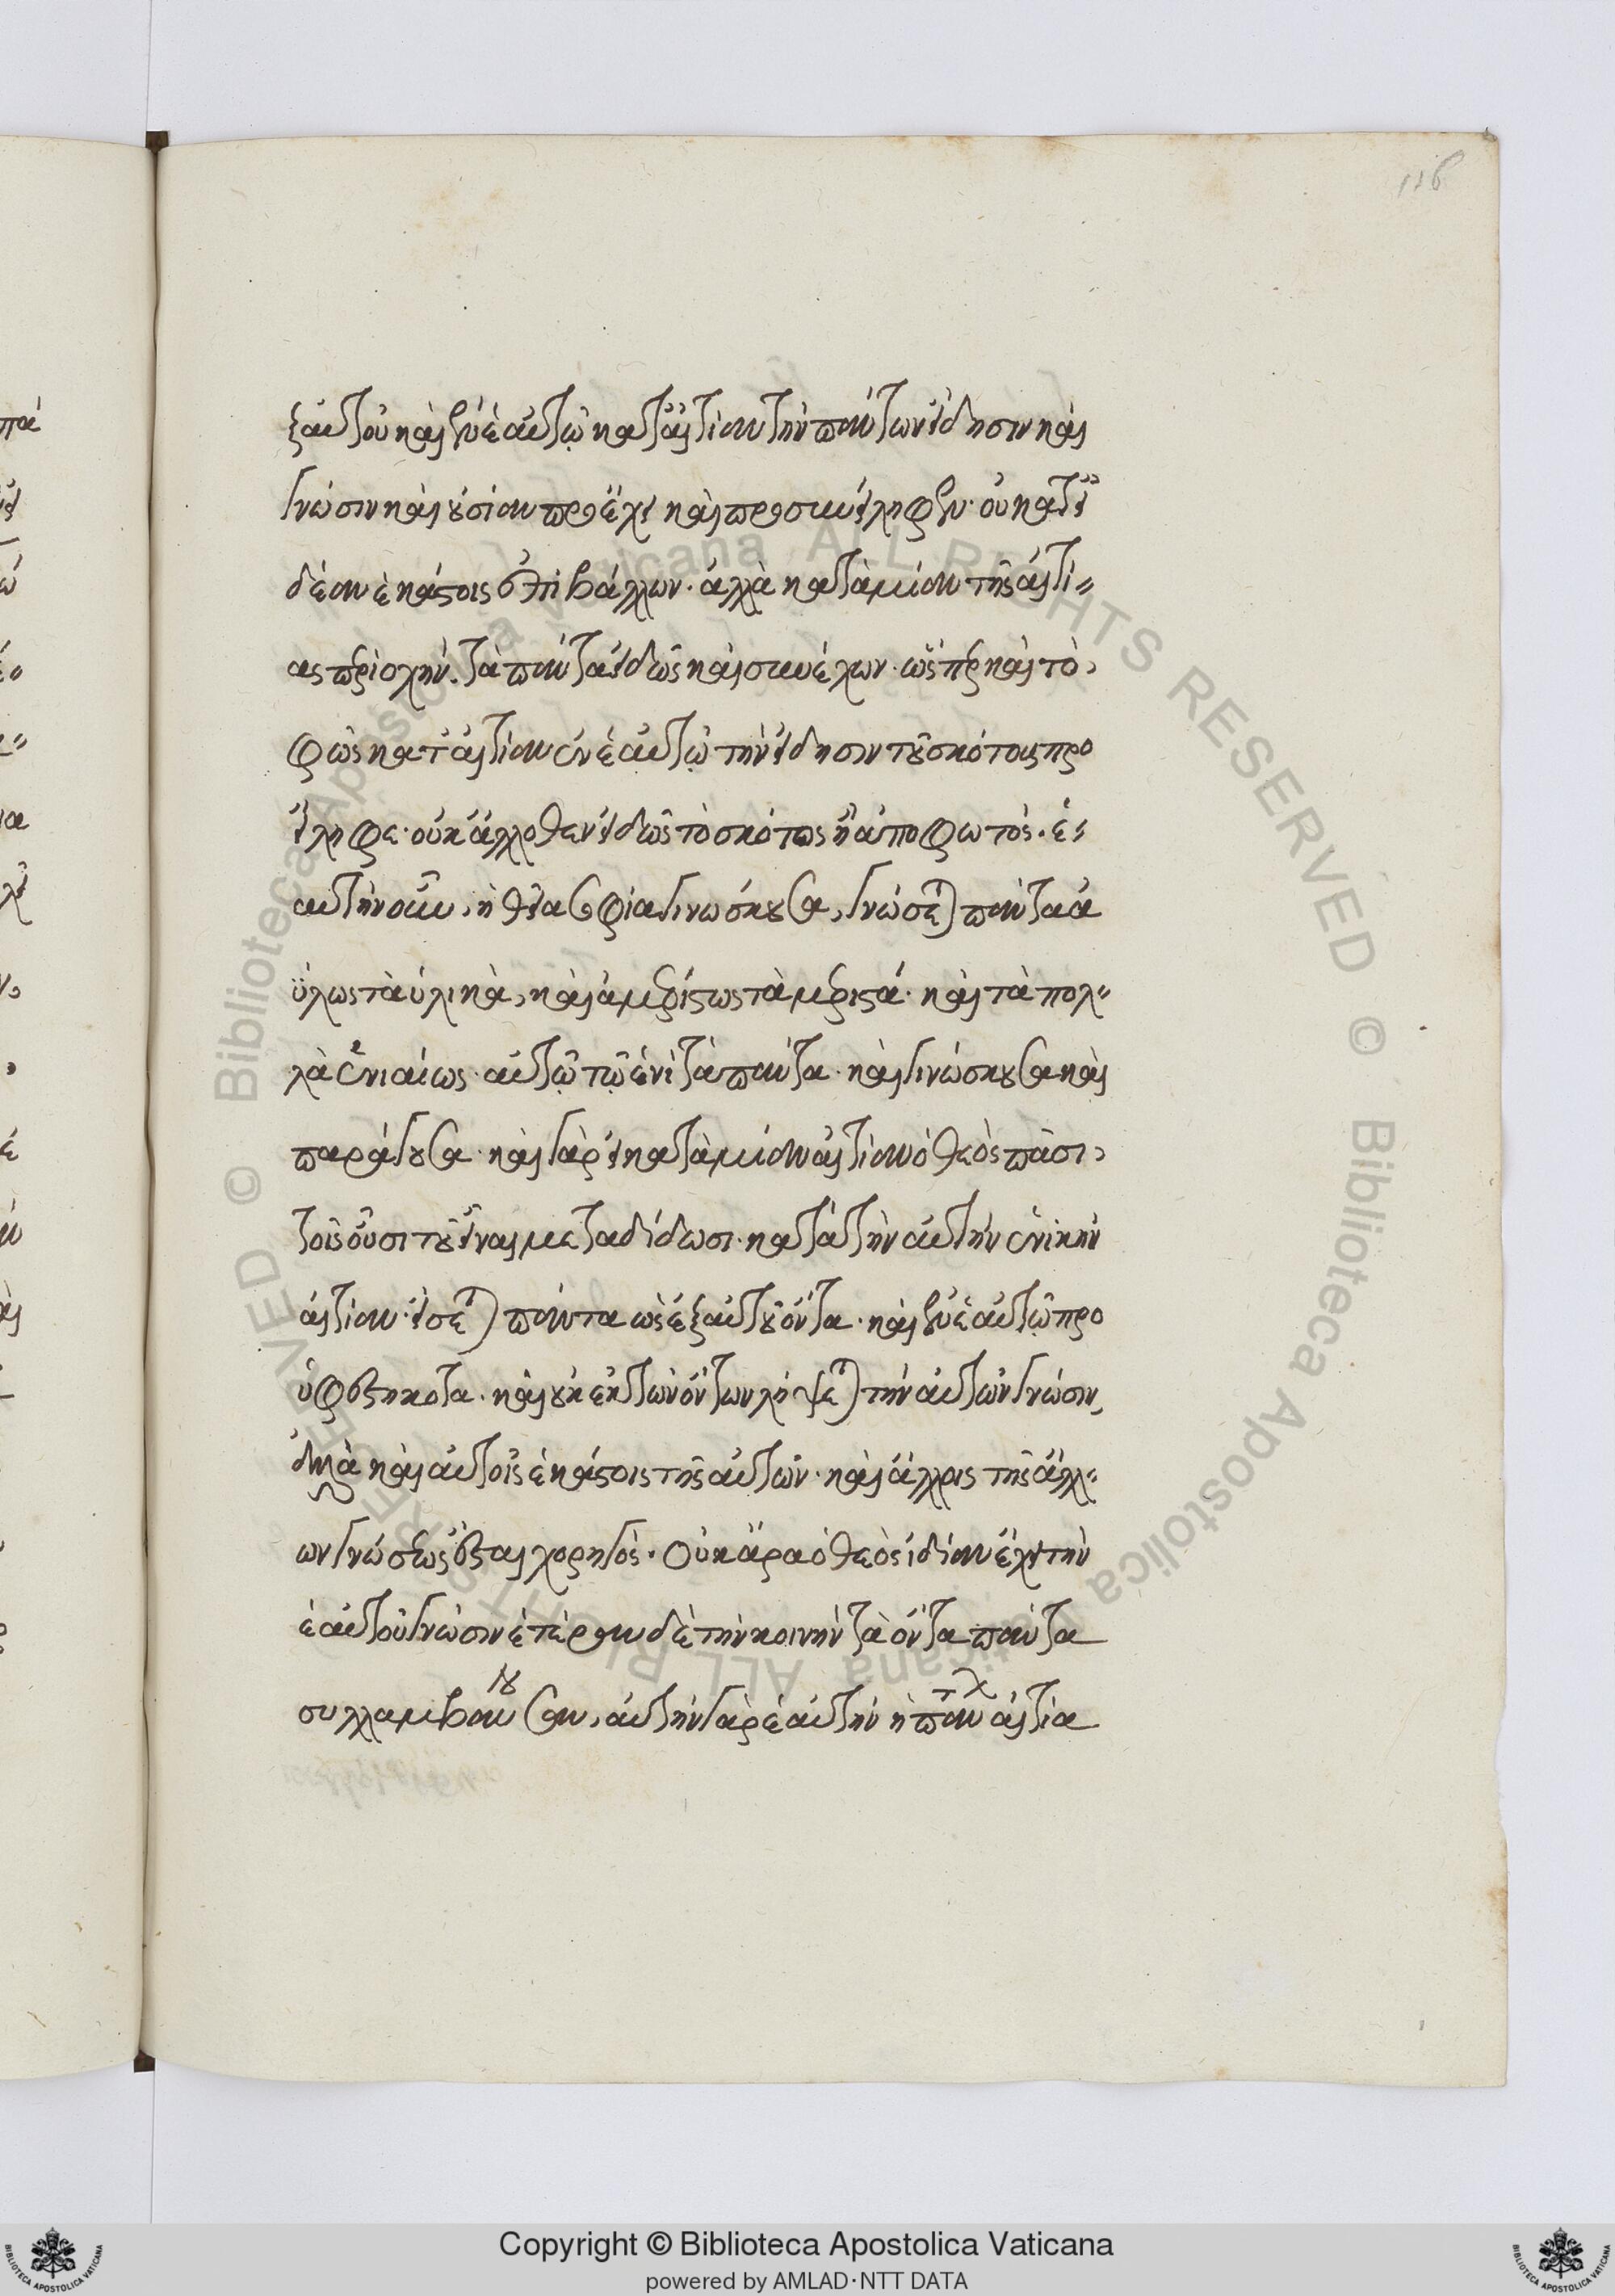 ξ αὐτοῦ καὶ ἐν ἑαυτῷ κατ' αἰτίαν τὴν πάντων εἴδησιν καὶ
γνῶσιν καὶ οὐσίαν προέχει καὶ προσυνείληφεν· οὐ κατ' εἰ
δέαν ἑκάστοις ἐπιβάλλων· ἀλλὰ κατὰ μίαν τῆς αἰτί-
ας περιοχὴν. τὰ πάντα εἰδὼς καὶ συνέχων· ὥσπερ καὶ τὸ
φῶς κατ' αἰτίαν ἐν ἑαυτῷ τὴν εἴδησιν τοῦ σκότους προ
είληφε· οὐκ ἄλλοθεν εἰδὼς τὸ σκότος ἢ ἀπὸ φωτός. ἑ-
αυτὴν οὖν, ἡ θεία σοφία γινώσκουσα, γνώσεται πάντα ἀ
ΰλως τὰ ὑλικὰ, καὶ ἀμερίστως τὰ μεριστά· καὶ τὰ πολ-
λὰ ἑνιαίως· αὐτῷ τῷ ἑνὶ τὰ πάντα· καὶ γινώσκουσα καὶ
παράγουσα· καὶ γὰρ εἰ κατὰ μίαν αἰτίαν ὁ θεὸς πᾶσι,
τοῖς οὖσι τοῦ εἶναι μεταδίδωσι· κατὰ τὴν αὐτὴν ἑνικὴν
αἰτίαν· εἴσεται πάντα ὡς ἐξ αὐτοῦ ὄντα· καὶ ἐν ἑαυτῷ προ
ϋφεστηκότα· καὶ οὐκ ἐκ τῶν ὄντων λήψεται τὴν αὐτῶν γνῶσιν,
ἀλλὰ καὶ αὐτοῖς ἑκάστοις τῆς αὐτῶν· καὶ ἄλλοις τῆς ἄλλ-
ων γνώσεως ἔσται χορηγός. Οὐκ ἄρα ὁ θεὸς ἰδίαν ἔχει τὴν
ἑαυτοῦ γνῶσιν ἑτέραν δὲ τὴν κοινὴν τὰ ὄντα πάντα
συλλαμβάνουσαν, αὐτὴν γὰρ ἑαυτὴν ἡ πάντων αἰτία
Copyright © Biblioteca Apostolica Vaticana
powered by AMLAD·NTT DATA